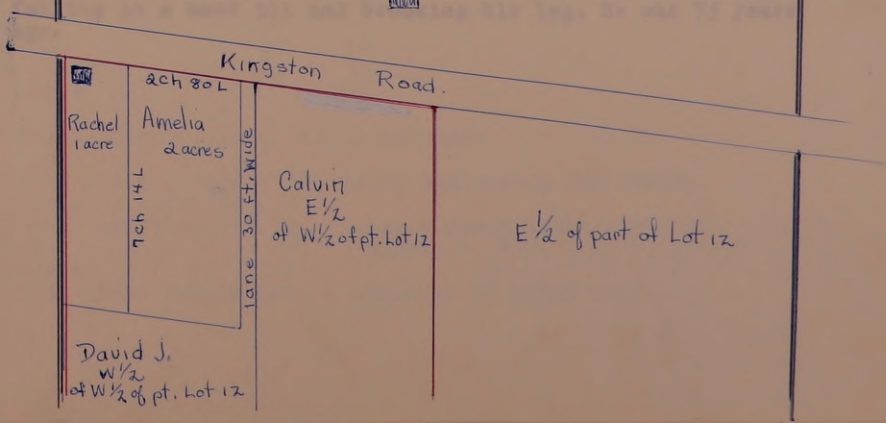 Kingston Road.
2ch 80L
Rachel
1 acre
Amelia
2 acres
7ch 14L
lane 30 ft. wide
Calvin
E 1/2
of W 1/2 of pt. Lot 12
E 1/2 of part of Lot 12
David J.
W 1/2
of W 1/2 of pt. Lot 12